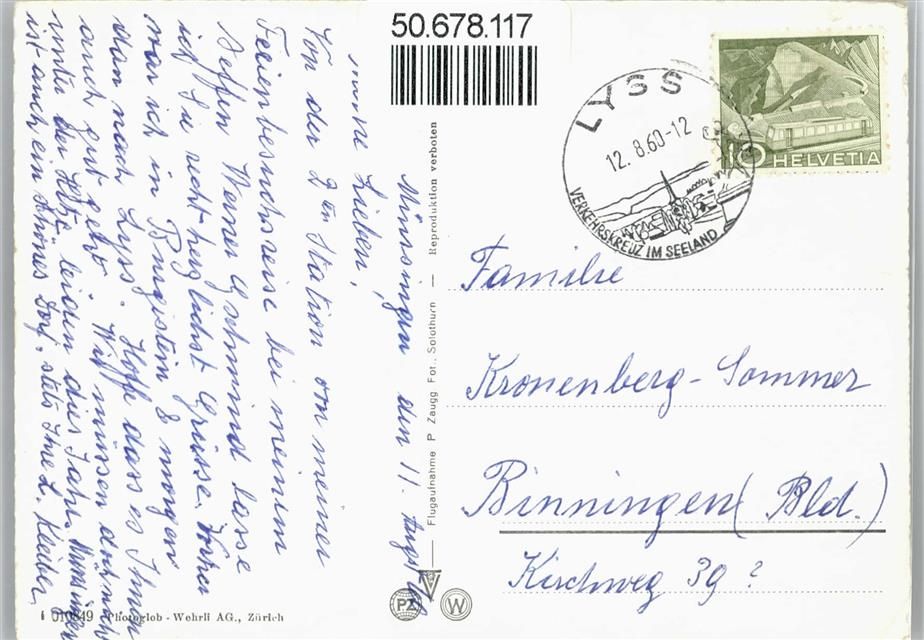 50.678.117
Münsingen den 11. August 60
meine Lieben,
Von der 2ten Station von meiner
Ferienbesuchsreise bei meinem
Neffen Werner Gschwind lasse
ich Sie recht herzlichst Grüssen. Vorher
war ich in Burgistein & morgen
dann nach Lyss. Hoff dass es Ihnen
auch gut geht. Wir müssen auch nicht
unter der Hitze leiden dies Jahr. Münsingen
ist auch ein schönes Dorf. stets Ihre L. Kleiber
i 010849 Photoglob - Wehrli AG., Zürich
Flugaufnahme P Zaugg Fot., Solothurn — Reproduktion verboten
PZ
W
LYSS
12. 8.60-12
VERKEHRSKREUZ IM SEELAND
10 HELVETIA
Familie
Kronenberg-Sommer
Binningen (Bld.)
Kirchweg 39?